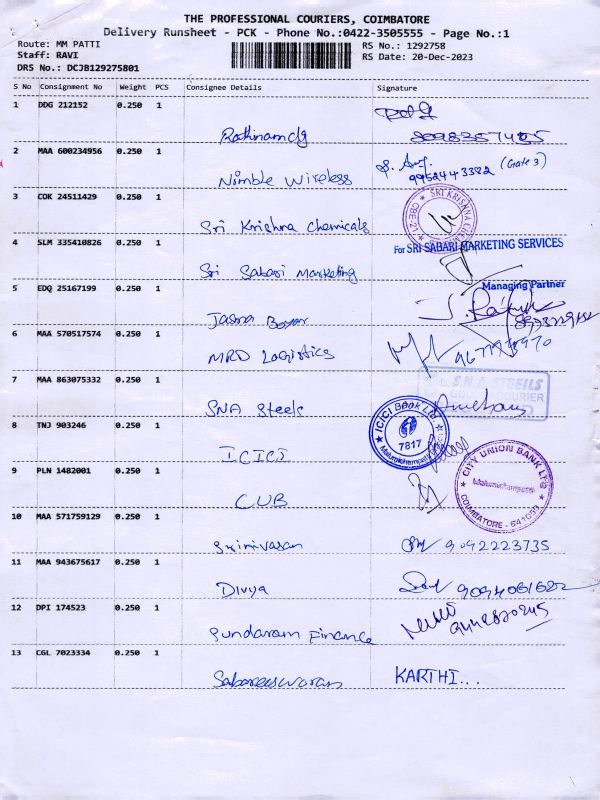 THE PROFESSIONAL COURIERS, COIMBATORE
Delivery Runsheet - PCK - Phone No.:0422-3505555 - Page No.:1
Route: MM PATTI
RS No.: 1292758
Staff: RAVI
RS Date: 20-Dec-2023
DRS No.: DCJB129275801
S No Consignment No Weight PCS Consignee Details Signature
1 DDG 212152 0.250 1
2 MAA 600234956 0.250 1
(Gate 3)
Nimble Wireless 9952443382
3 COK 24511429 0.250 1
SRI KRISHNA
CBE-21
Sri Krishna Chemicals
4 SLM 335410826 0.250 1
For SRI SABARI MARKETING SERVICES
Sri Sabari Marketing
Managing Partner
5 EDQ 25167199 0.250 1
Jasna
6 MAA 570517574 0.250 1
MRD Logistics
7 MAA 863075332 0.250 1
S.N.A STEELS
COURIER
SNA Steels
8 TNJ 903246 0.250 1
ICICI Book Ltd
7817
Malumichampatti
ICICI
9 PLN 1482001 0.250 1
CITY UNION BANK LTD
Malumichampatti
COIMBATORE - 641050
CUB
10 MAA 571759129 0.250 1
Srinivasan 9092223735
11 MAA 943675617 0.250 1
Divya
12 DPI 174523 0.250 1
Sundaram Finance
13 CGL 7023334 0.250 1
KARTHI...
Sabareeswaran